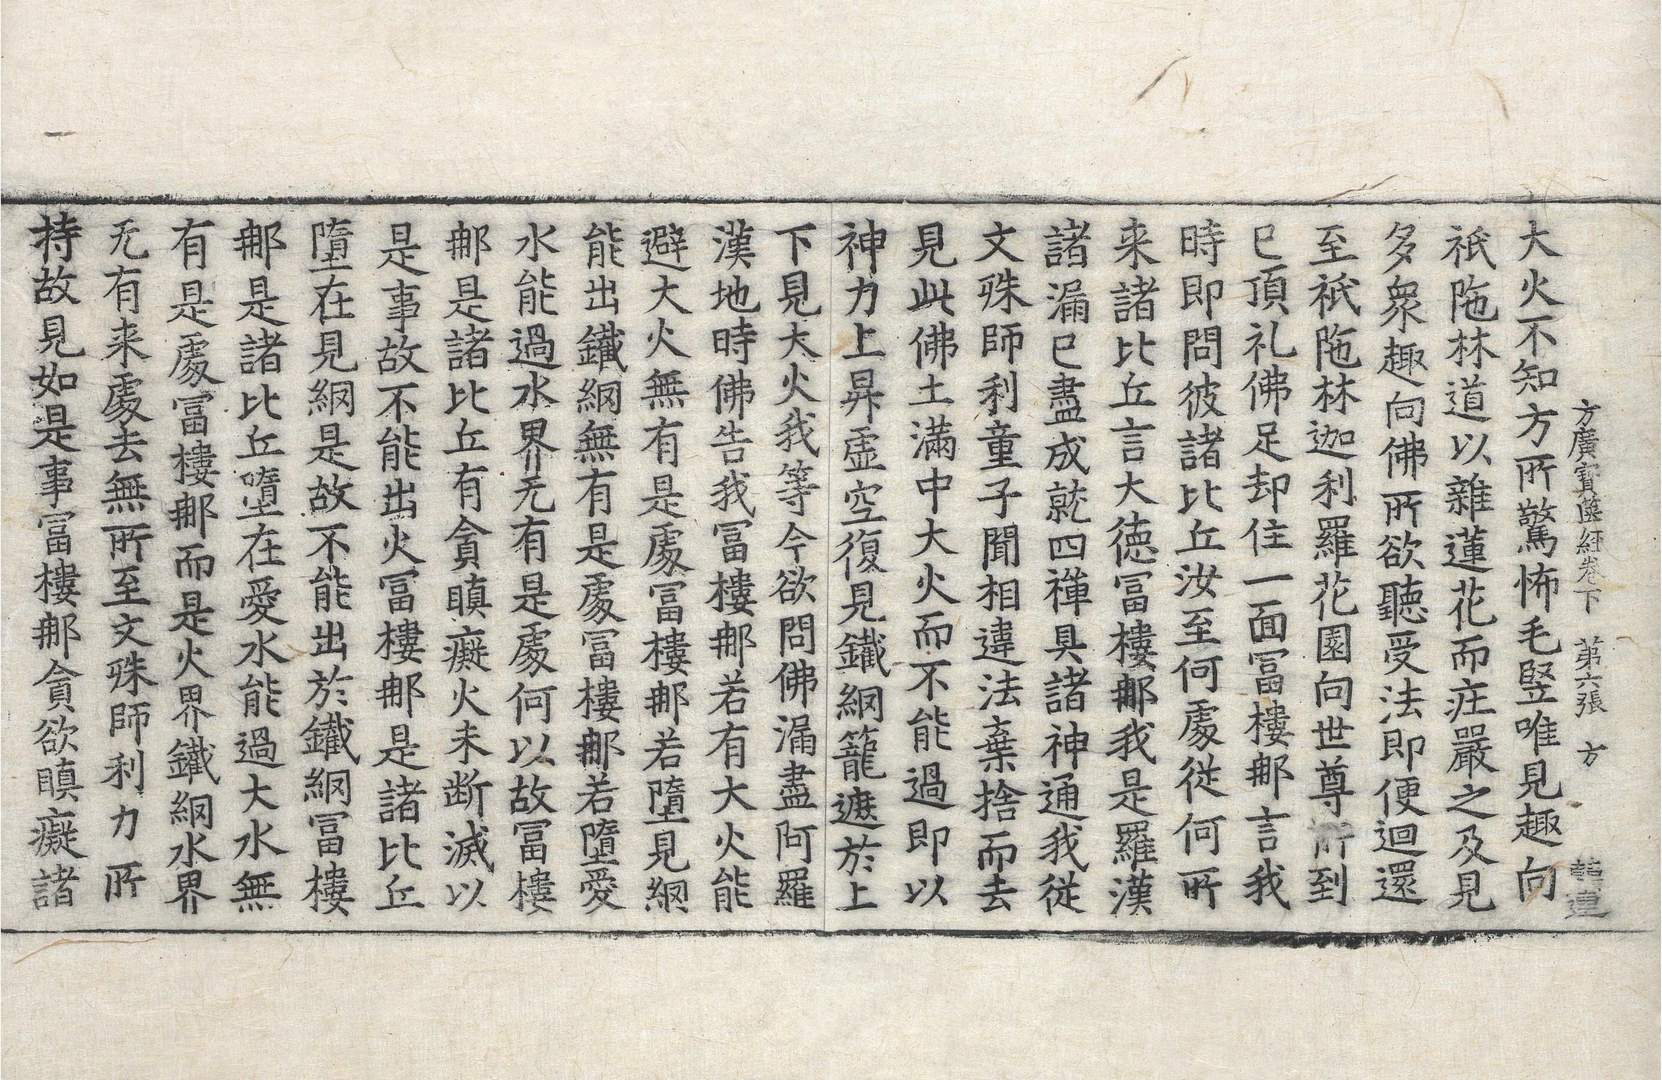 方廣寶篋經卷下 第六張 方
大火不知方所驚怖毛竪唯見趣向
祇陁林道以雜蓮花而庄嚴之及見
多衆趣向佛所欲聽受法即便迴還
至祇陁林迦利羅花園向世尊所到
已頂礼佛足却住一面冨樓郍言我
時即問彼諸比丘汝至何處從何所
来諸比丘言大德冨樓郍我是羅漢
諸漏已盡成就四禪具諸神通我從
文殊師利童子聞相違法棄捨而去
見此佛土滿中大火而不能過即以
神力上昇虛空復見鐵網籠遮於上
下見大火我等今欲問佛漏盡阿羅
漢地時佛告我冨樓郍若有大火能
避大火無有是處冨樓郍若墮見網
能出鐵網無有是處冨樓郍若墮愛
水能過水界无有是處何以故冨樓
郍是諸比丘有貪瞋癡火未斷滅以
是事故不能出火冨樓郍是諸比丘
墮在見網是故不能出於鐵網冨樓
郍是諸比丘墮在愛水能過大水無
有是處冨樓郍而是火界鐵網水界
无有来處去無所至文殊師利力所
持故見如是事冨樓郍貪欲瞋癡諸